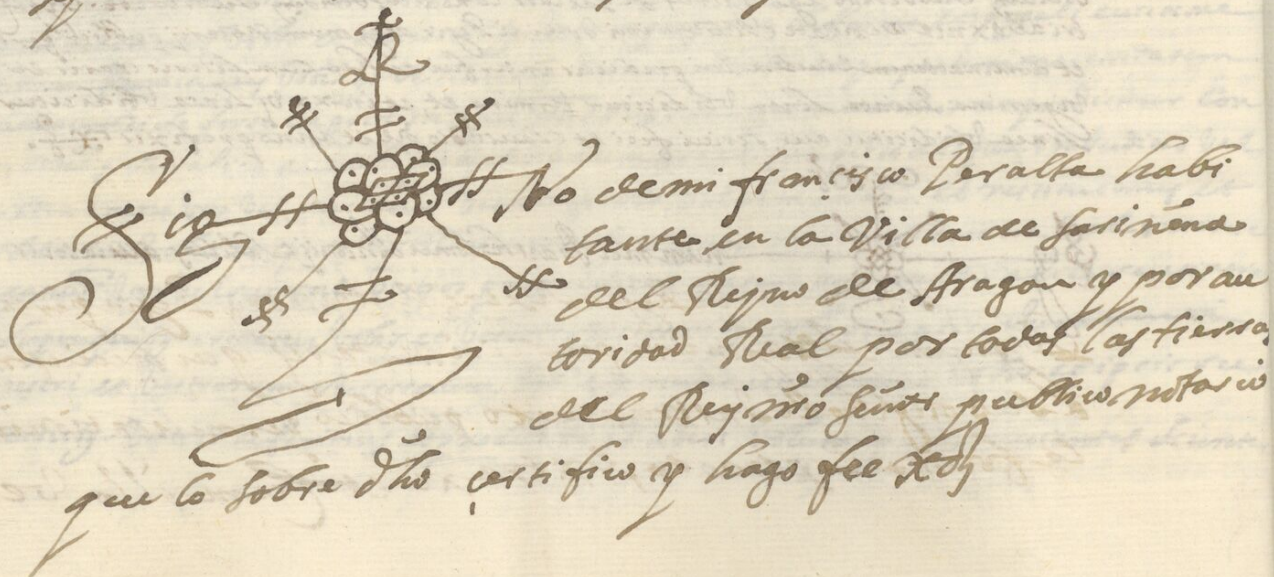 Sig No de mi françisco Peralta habi
tante en la Villa de Sariñena
del Reyno de Aragon y por au
toridad Real por todas las tierras
del Rey nr̃o señor publico notario
que lo sobre dho çertifico y hago fee